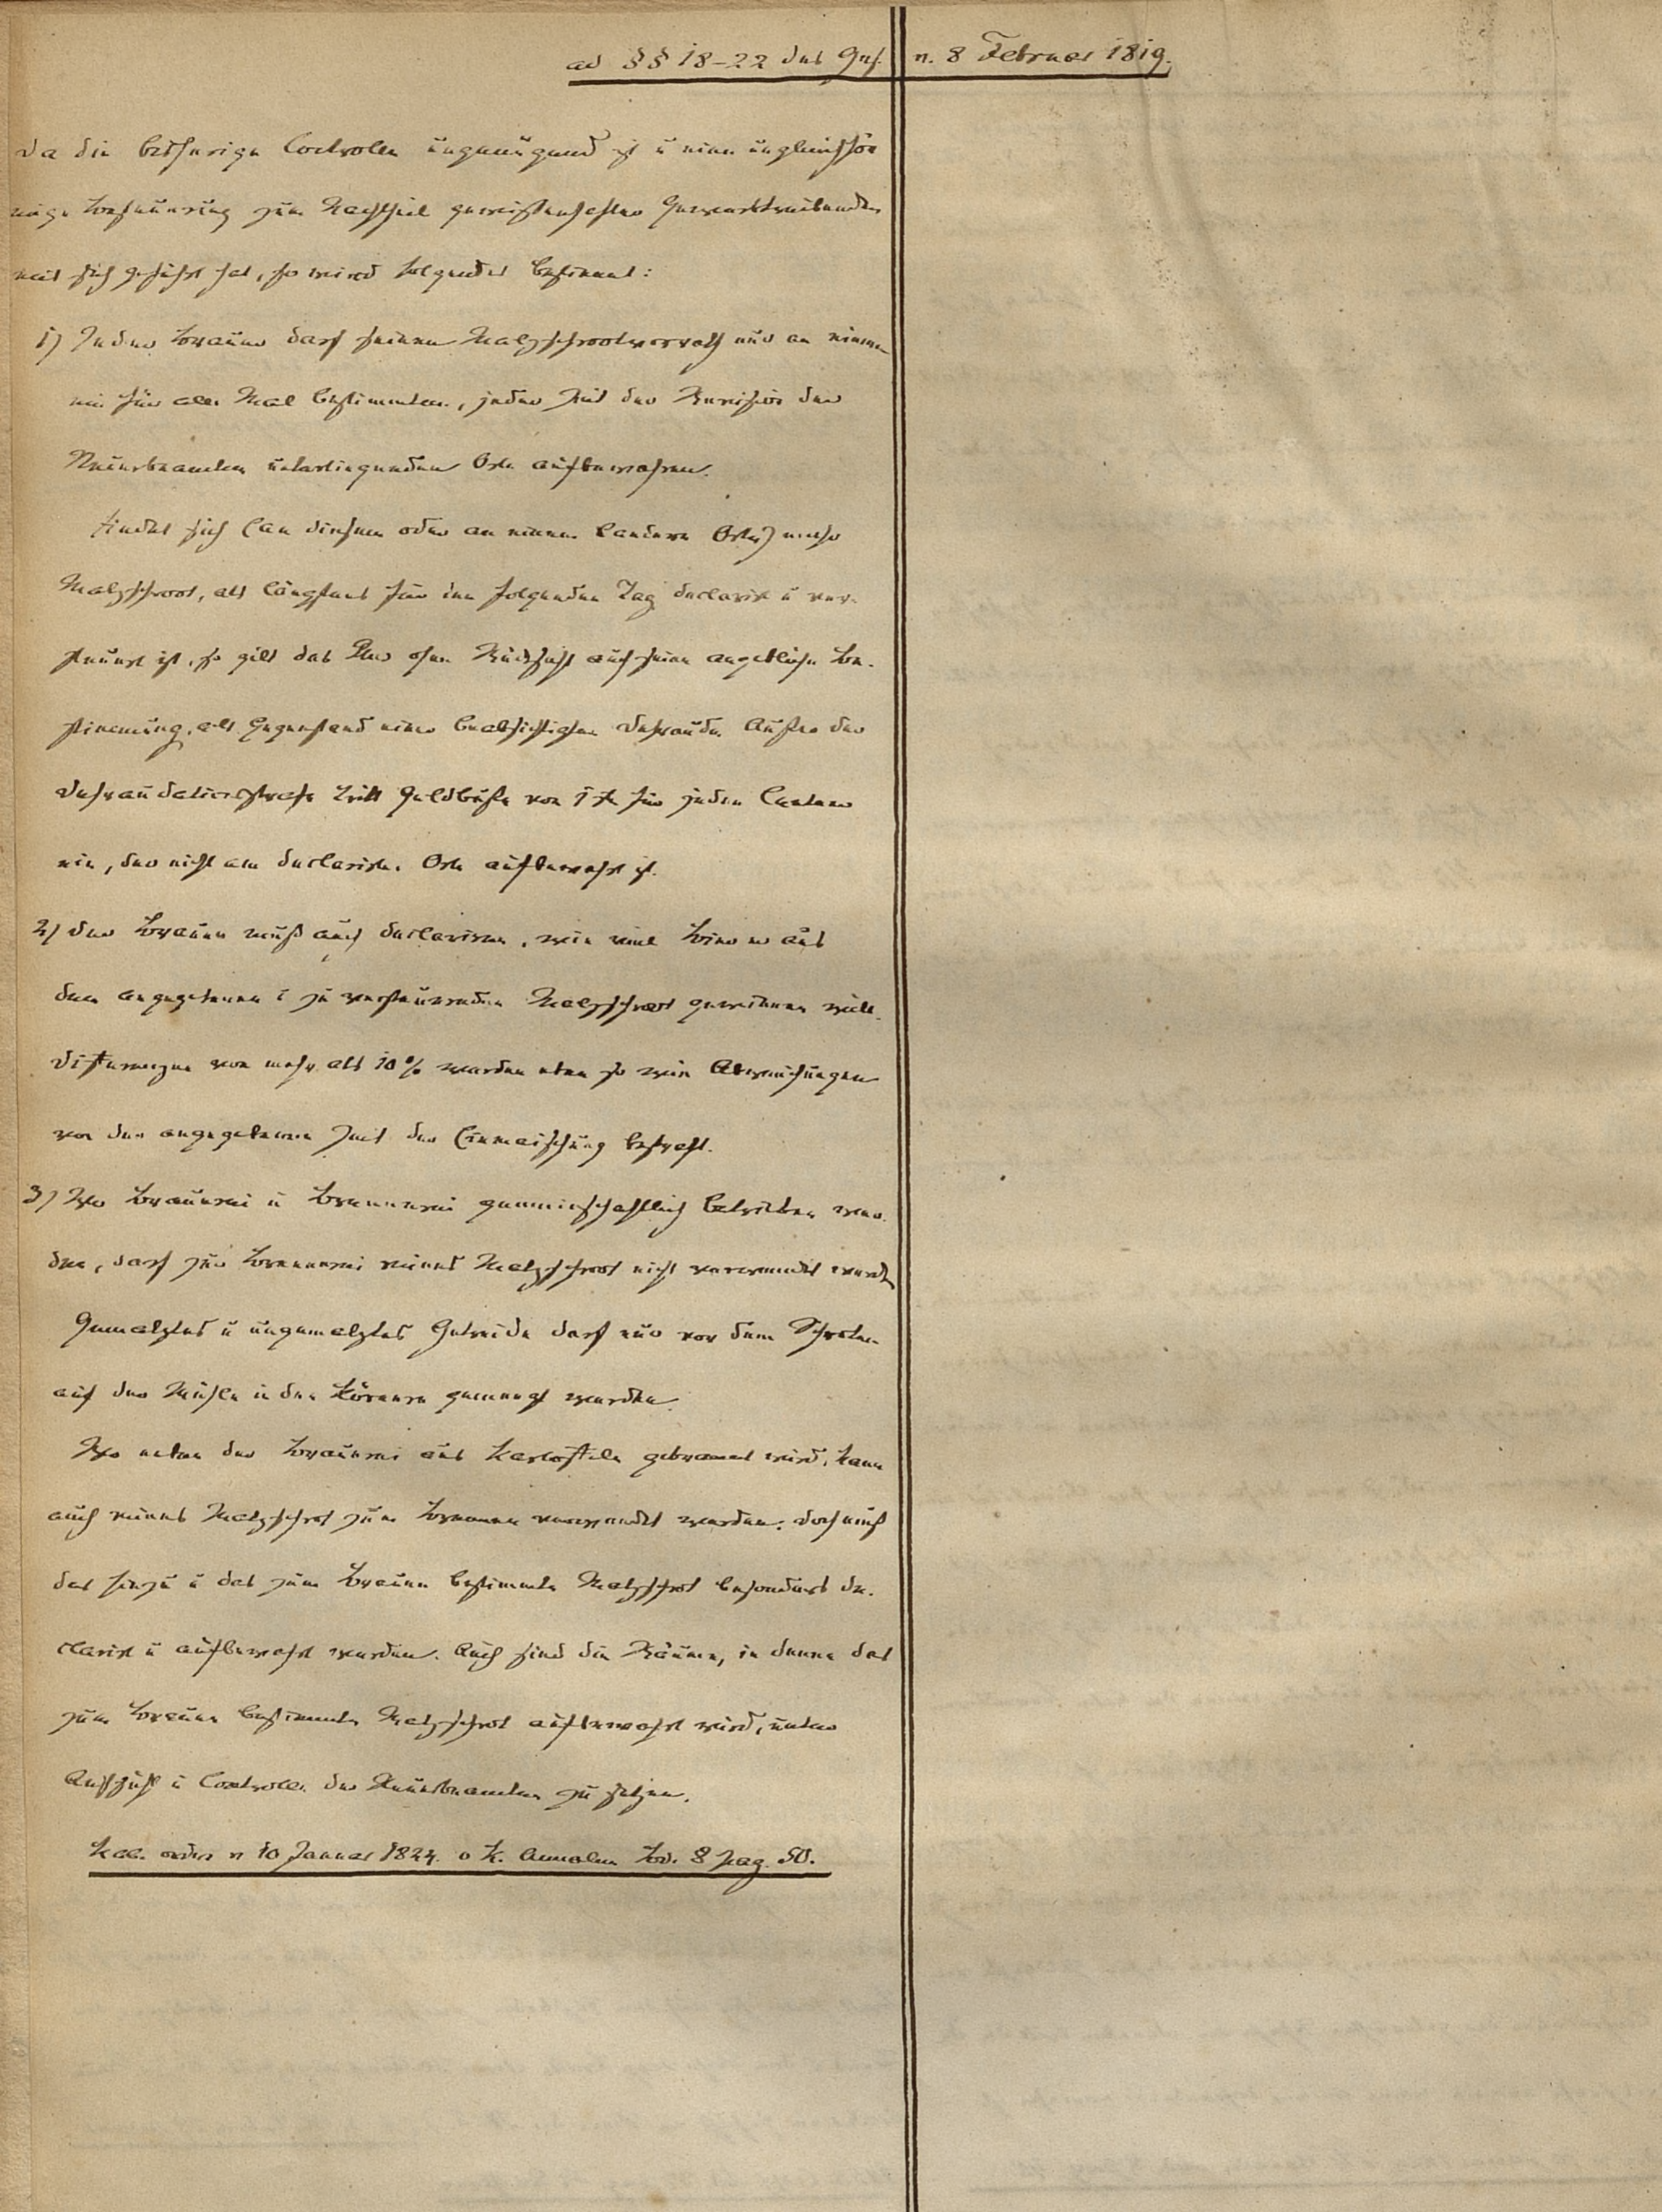 ad §§ 18-22 des Ges. v. 8 Februar 1819.
Da die bisherige Controlle ungenügend ist u eine ungleichför
mige Besteuerung zum Nachtheil gewissenhafter Gewerbtreibenden
mit sich geführt hat, so wird folgendes bestimmt:
1) Jeder Brauer darf seinen Malzschrootvorrath nur an einem
ein für alle Mal bestimmten, jeder Zeit der Revision der
Steuerbeamten unterliegenden Orte aufbewahren.
Findet sich (an diesem oder an einem andern Orte) mehr
Malzschroot, als längstens für den folgenden Tag declarirt u ver-
steuert ist, so gilt das Plus ohne Rücksicht auf seine angebliche Be-
stimmung, als Gegenstand einer beabsichtigten Defraude. Außer der
Defraudationsstrafe tritt Geldbuße von 1 für jeden Centner
ein, der nicht am declarirten Orte aufbewahrt ist.
2) Der Brauer muß auch declariren, wie viel Bier er aus
dem angegebenen u zu versteuernden Malzschroot gewinnen will.
Differenzen von mehr als 10% werden eben so wie Abweichungen
von der angegebenen Zeit der Einmaischung bestraft.
3) Wo Brauerei u Brennerei gemeinschaftlich betrieben wer-
den, darf zur Brennerei reines Malzschroot nicht verwendet werden
Gemalztes u ungemalztes Getreide darf nur vor dem Schroten
auf der Mühle in den Körnern gemengt werden.
Wo neben der Brauerei aus Kartoffeln gebrannt wird, kann
auch reines Malzschrot zum Brennen verwendet werden. Doch muß
das hierzu u das zum Brauen bestimmte Malzschrot besonders de-
clarirt u aufbewahrt werden. Auch sind die Räume, in denen das
zum Brauen bestimmte Malzschrot aufbewahrt wird, unter
Aufsicht u Controlle der Steuerbeamten zu setzen.
Kab. order v 10 Januar 1824. v K. Annalen Bd. 8 pag. 50.